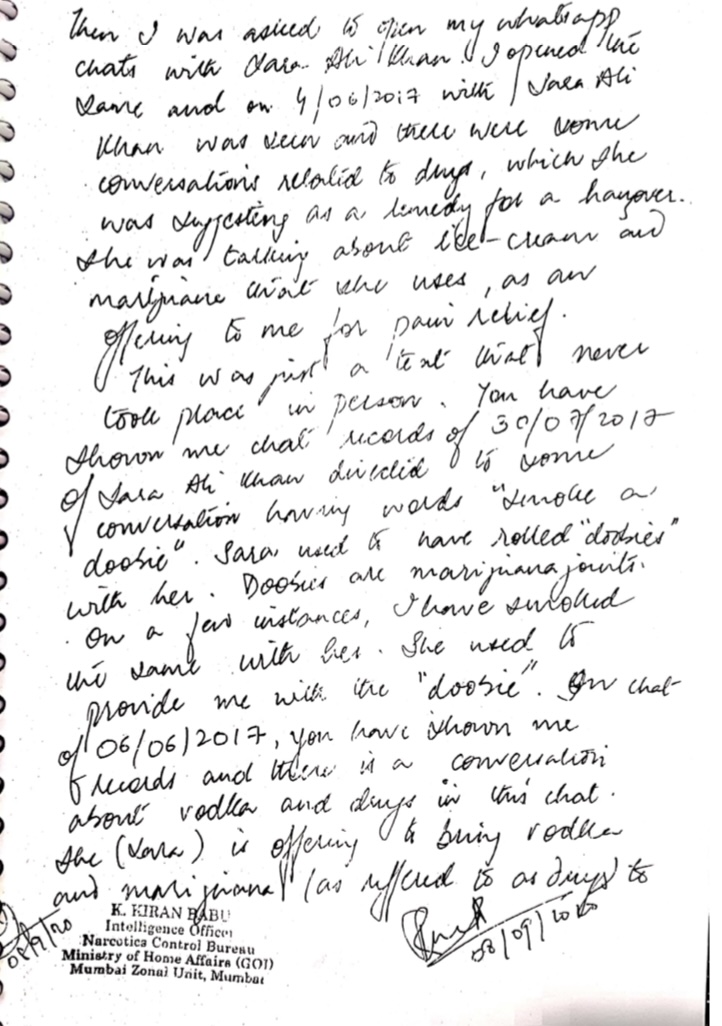 Then I was asked to open my whatsapp
chats with Sara Ali Khan. I opened the
same and on 4/06/2017 with Sara Ali
Khan was seen and there were some
conversations related to drugs, which she
was suggesting as a remedy for a hangover.
She was talking about ice-cream and
marijuana that she uses, as an
offering to me for pain relief.
This was just a text that never
took place in person. You have
shown me chat records of 30/07/2017
of Sara Ali Khan directed to some
conversation having words "smoke a
doobie". Sara used to have rolled "doobies"
with her. Doobies are marijuana joints.
On a few instances, I have smoked
the same with her. She used to
provide me with the "doobie". In chat
of 06/06/2017, you have shown me
records and there is a conversation
about vodka and drugs in this chat.
She (Sara) is offering to bring vodka
and marijuana (as reffered to as drugs) to
08/9/20
K. KIRAN BABU
Intelligence Officer
Narcotics Control Bureau
Ministry of Home Affairs (GOI)
Mumbai Zonal Unit, Mumbai
08/09/2020